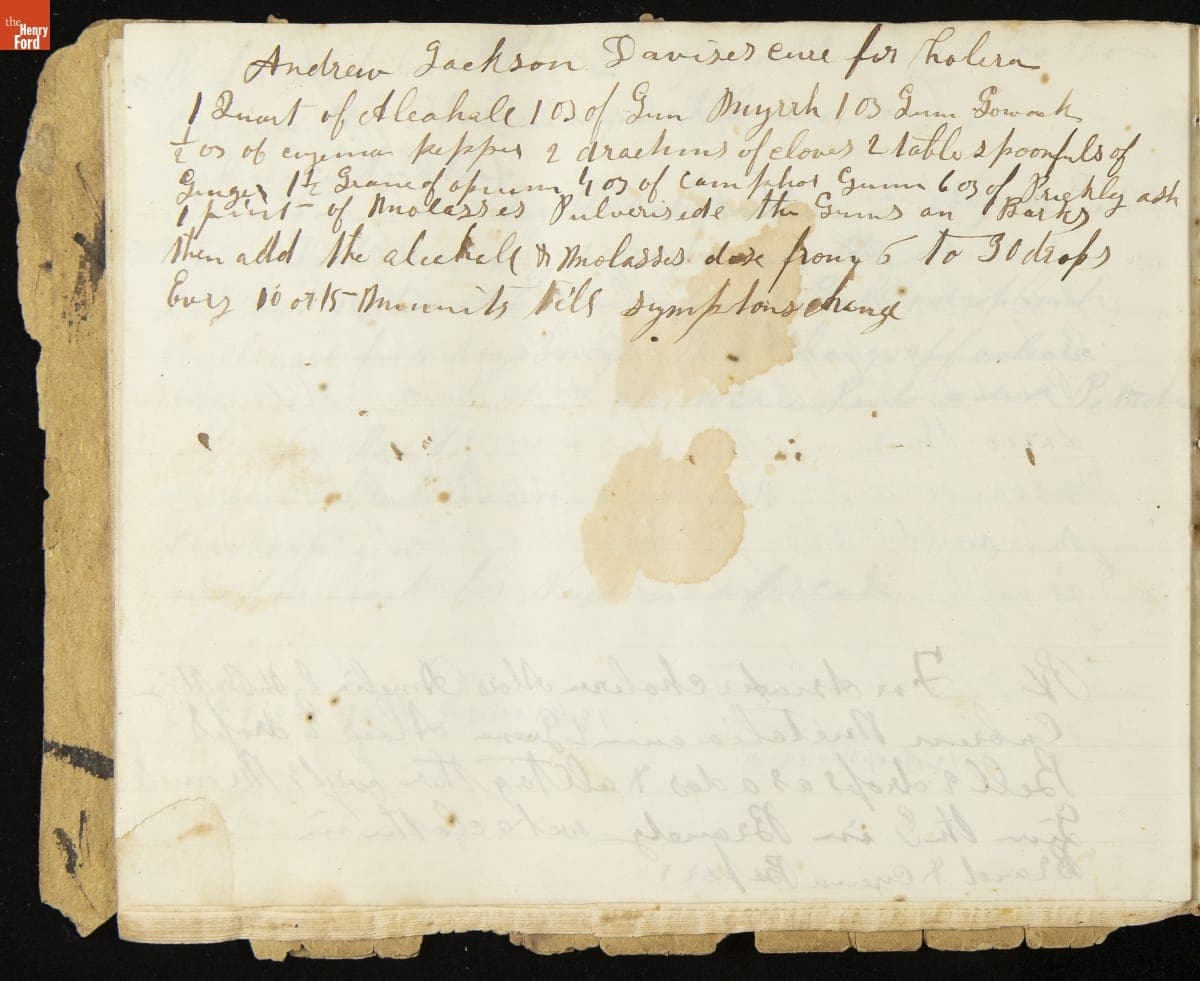 the
Henry
Ford
Andrew Jackson Davises cure for Cholera
1 Quart of Alcahale 1 oz of Gum Myrrh 1 oz Gum
½ oz of cyema pepper 2 drachms of cloves 2 table spoonfuls of
Ginger 1½ of opium ½ oz of Camphor Gumm 6 oz of Prighly ash
1 pint of Molasses Pulveriside the Gums an Barks
then add the alcahall & Molasses dose from 6 to 30 drops
Evry 10 or 15 Minnits till symptons change